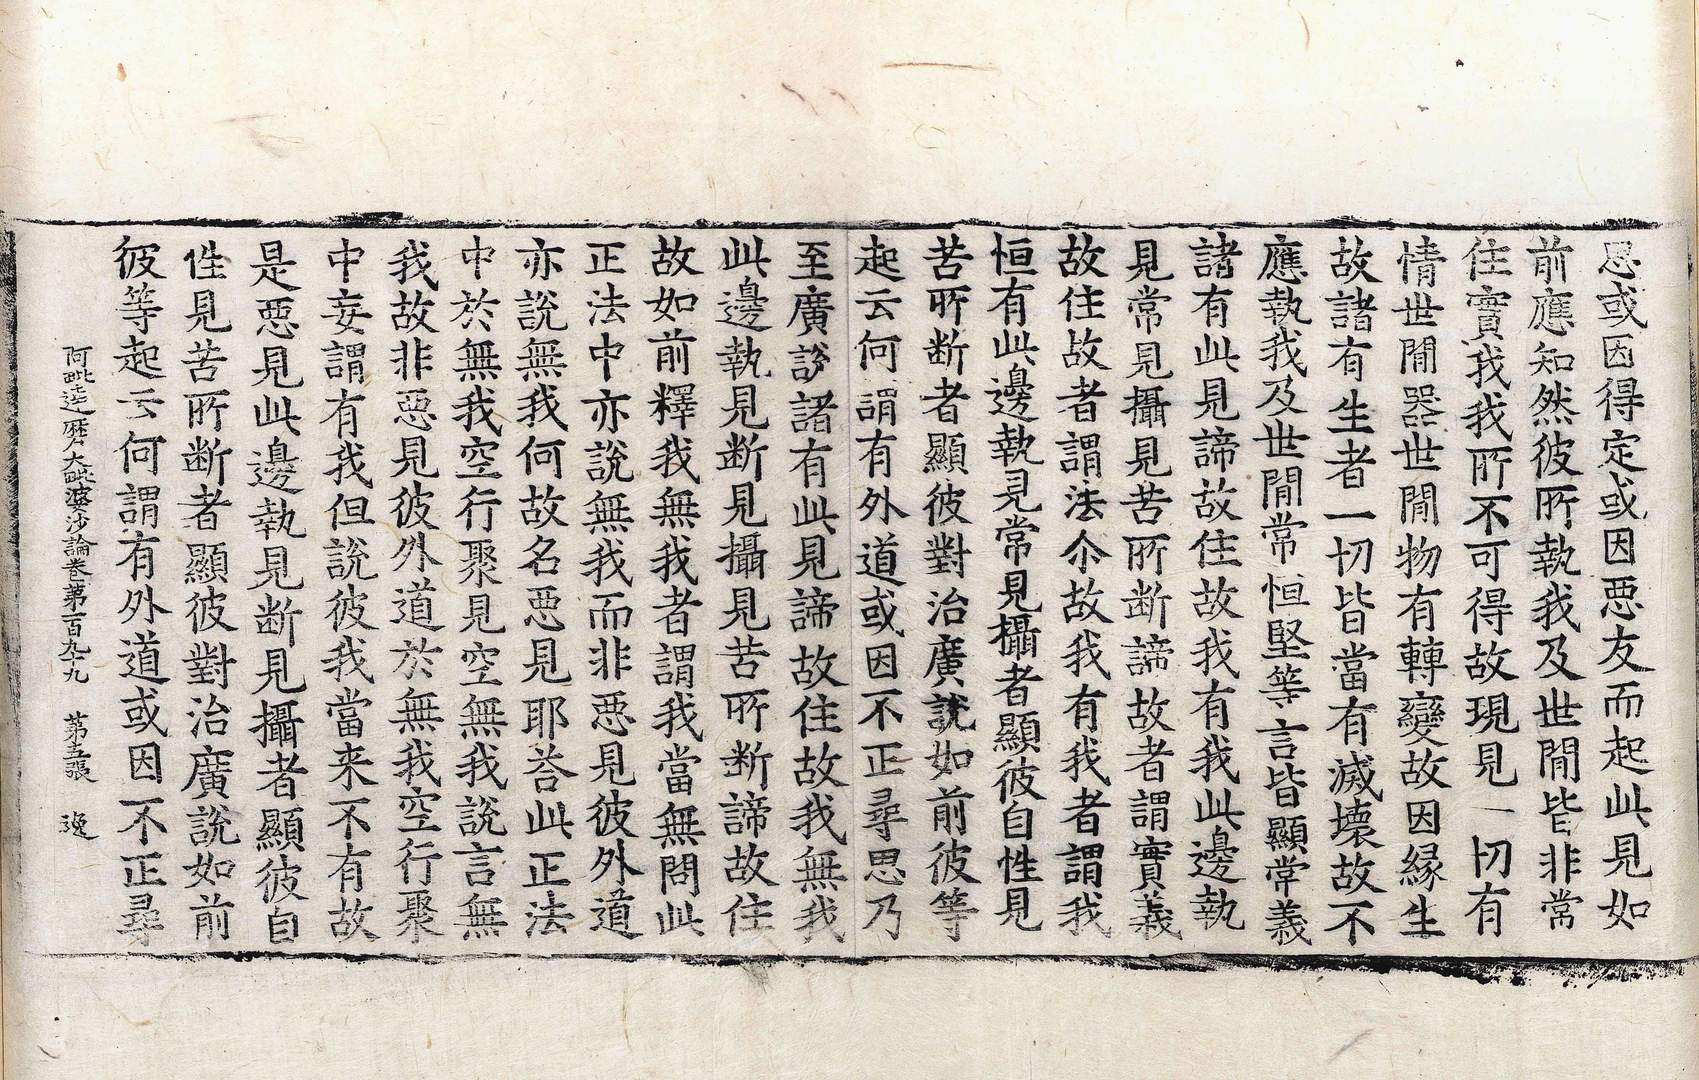 思或因得定或因惡友而起此見如
前應知然彼所執我及世間皆非常
住實我我所不可得故現見一切有
情世間器世間物有轉變故因緣生
故諸有生者一切皆當有滅壞故不
應執我及世間常恒堅等言皆顯常義
諸有此見諦故住故我有我此邊執
見常見攝見苦所断諦故者謂實義
故住故者謂法尒故我有我者謂我
恒有此邊執見常見攝者顯彼自性見
苦所断者顯彼對治廣說如前彼等
起云何謂有外道或因不正尋思乃
至廣說諸有此見諦故住故我無我
此邊執見断見攝見苦所断諦故住
故如前釋我無我者謂我當無問此
正法中亦說無我而非惡見彼外道
亦說無我何故名惡見耶荅此正法
中於無我空行聚見空無我說言無
我故非惡見彼外道於無我空行聚
中妄謂有我但說彼我當来不有故
是惡見此邊執見断見攝者顯彼自
性見苦所断者顯彼對治廣說如前
彼等起云何謂有外道或因不正尋
阿毗達磨大毗婆沙論卷第一百九十九　第五張　逸